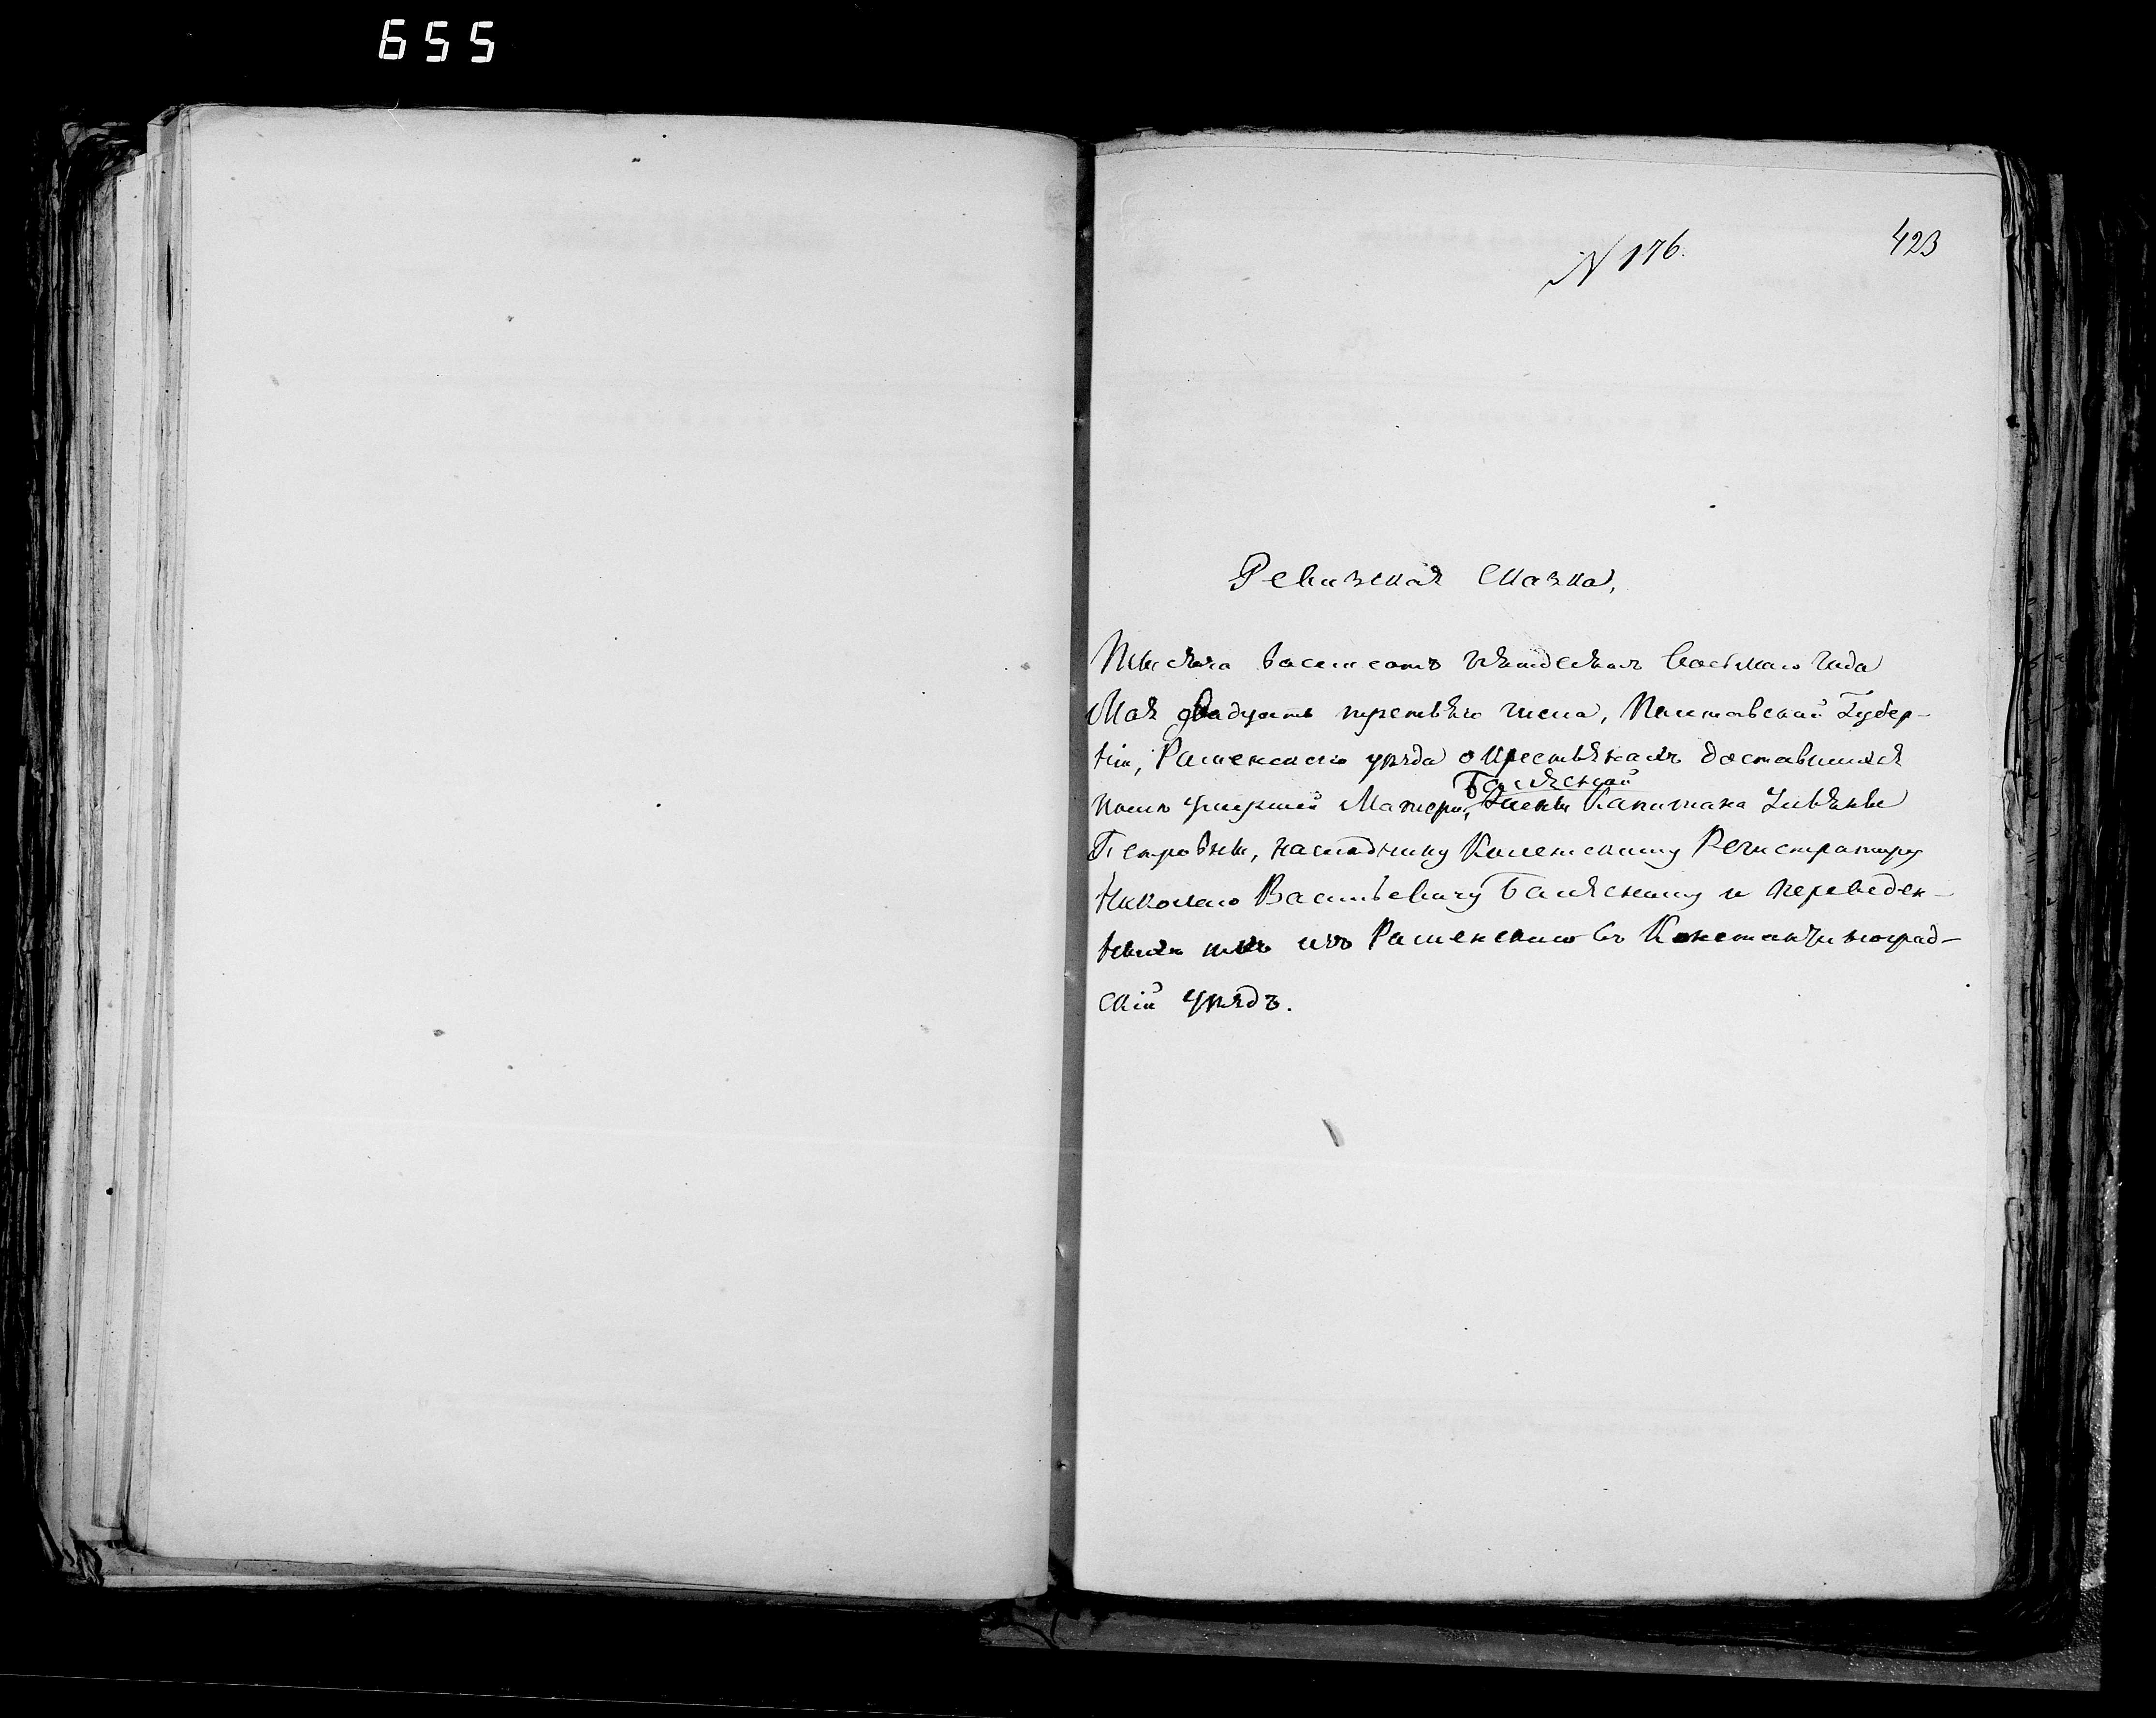 655
N 176.
423
Ревизская Сказка,
Тысяча восемсотъ пятдесятъ восьмаго Года
Мая двадцать третьяго числа, Полтавской Губер-
ніи, Роменского уезда о Крестьянахъ доставшихся
Балясной
после умершей Матери, Жены Капитана Ульяны
Петровны, наследнику Колежскому Регистратору
Николаю Васильевичу Балясному и переведен-
ныхъ изъ Роменского въ Константиноград-
скій уездъ.